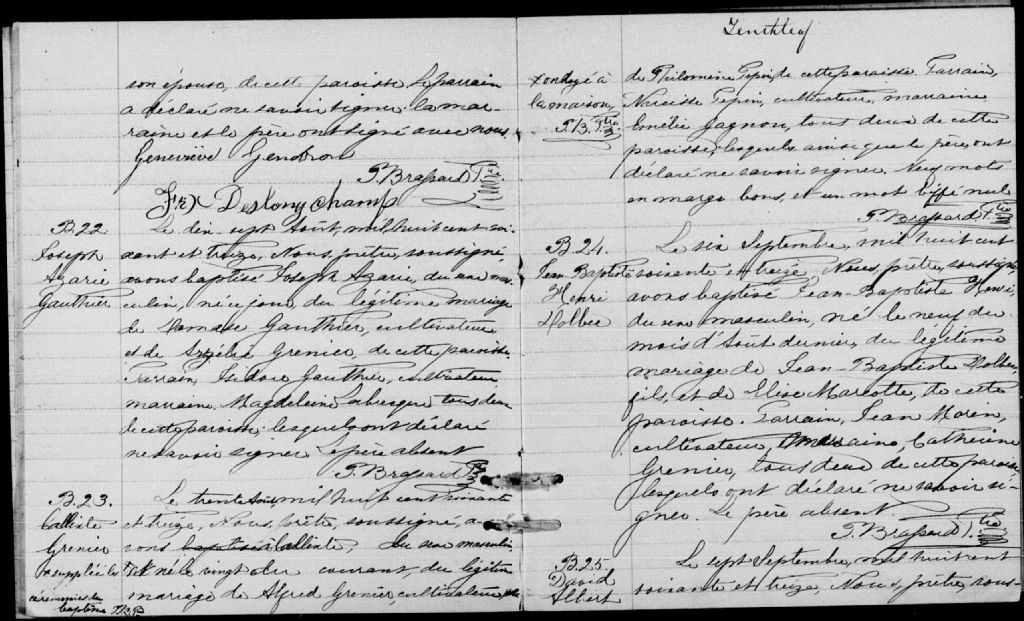 son épouse, de cette paroisse Le parrain
a déclaré ne savoir signer la mar-
raine et le père ont signé avec nous.
Geneviève Gendron
P. Brassard Ptre
Frx Deslonychamp
B. 22
Joseph
Azarie
Gauthier
Le dix sept Août, mil huit cent soi-
xant et treize, Nous, prêtre, soussigné,
avons baptisé Joseph Azarie, du sexe mas-
culin, né ce jour, du légitime mariage
de Damase Gauthier, cultivateur
et de Azélie Grenier, de cette paroisse.
Parrain, Isidore Gauthier, cultivateur,
marraine Magdeleine Labrecque tous deux
de cette paroisse, lesquels ont déclaré
ne savoir signer Le père absent
P. Brassard Ptre
B. 23.
Calliste
Grenier
x supplié les
cérémonies du
baptême P.B.P.
Le trente Août, mil huit cent soixante
et treize, Nous, prêtre, soussigné, a-
vons baptisé à Calliste, du sexe masculin,
né le vingt du courant, du légitime
mariage de Alfred Grenier, cultivateur, et
Tenthleaf
x ondoyé à
la maison,
P. B. Ptre
de Philomène Pepin, de cette paroisse Parrain,
Narcisse Pepin, cultivateur, marraine
Emélie Gagnon, tout deux de cette
paroisse, lesquels ainsi que le père, ont
déclaré ne savoir signer. Neuf mots
en marge bons, et un mot biffé nul
P. Brassard Ptre
B. 24.
Jean Baptiste
Henri
Holbee
Le six Septembre, mil huit cent
soixante et treize, Nous, prêtre, soussigné
avons baptisé Jean-Baptiste Henri,
du sexe masculin, né le neuf du
mois d'Aout dernier, du légitime
mariage de Jean-Baptiste Holbee,
fils, et de Elise Marcotte, de cette
paroisse. Parrain, Jean Morin,
cultivateur, marraine, Catherine
Grenier, tous deux de cette paroisse,
lesquels ont déclaré ne savoir si-
gner. Le père absent
P. Brassard Ptre
B. 25.
David
Albert
Le sept Septembre, mil huit cent
soixante et treize, Nous, prêtre, sous-